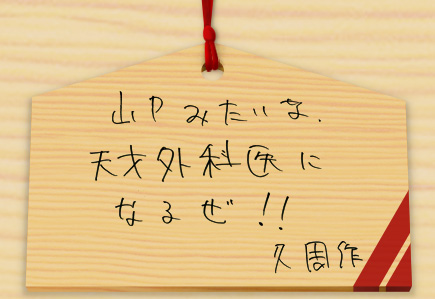 山Pみたいな.
天才外科医に
なるぜ!!
久周作